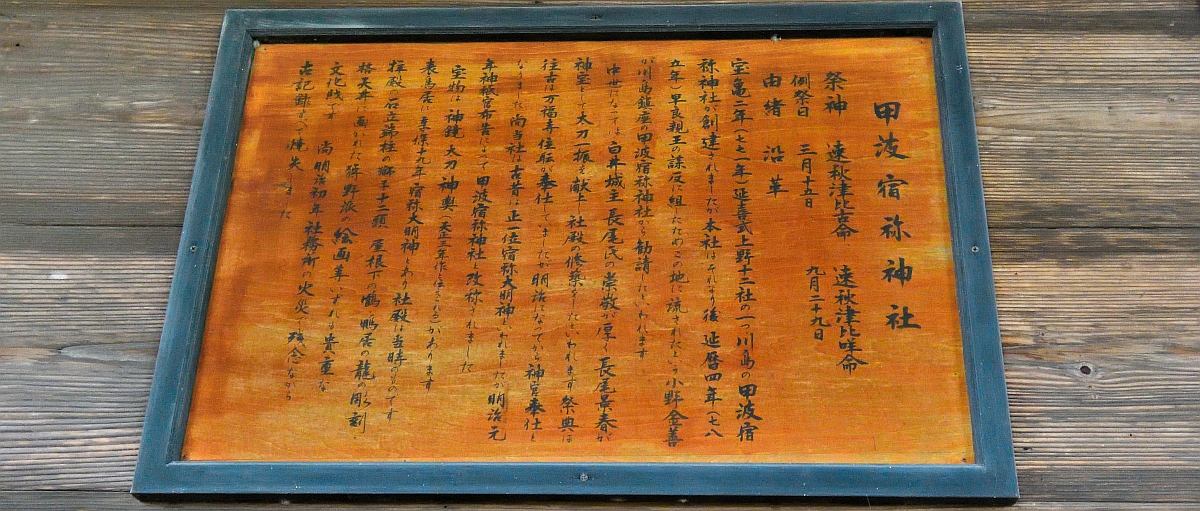 甲波宿祢神社
祭神 速秋津比古命 速秋津比咩命
例祭日 三月十五日 九月二十九日
由緒 沿革
宝亀二年(七七一年)延喜式上野十二社の一つ川島の甲波宿
祢神社が創建されましたが本社はそれより後 延暦四年(七八
五年)早良親王の謀反に組したためこの地に流されたという小野金善
が川島鎮座の甲波宿祢神社から勧請したといわれます
中世になっては白井城主長尾氏の崇敬が厚く長尾景春が
神宝として太刀一振を献上 社殿の修築をしたといわれます 祭典は
往古は万福寺住職が奉仕してましたが明治になってから神官奉仕と
なりました 尚当社は古昔は正一位宿祢大明神といわれましたが明治元
年神祇官布告によって甲波宿祢神社と改祢されました
宝物は神鏡 太刀 神輿(天正三年作と伝される)があります
表鳥居に享保十九年宿祢大明神とあり社殿は当時のものです
拝殿の石立歸柱の獅子十二頭 屋根下の鶴 鴨居の龍の彫刻
格天井に画かれた狩野派の絵画等いずれも貴重な
文化財です 尚明治初年社務所の火災で残念ながら
古記録すべて焼失しました